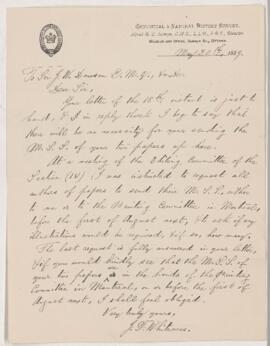 GEOLOGICAL & NATURAL HISTORY SURVEY.
MUSEUM AND OFFICE, SUSSEX ST., OTTAWA,
May 20th, 1889.
To Sir J. W. Dawson C.M.G.,
Dear Sir,
Your letter of the 18th instant is just to
hand, & I in reply thereto I beg to say that
there will be no necessity for your sending the
M.S.S. of your two papers up here.
At a meeting of the Editing Committee of the
Section (IV) I was instructed to request all
authors of papers to send their M.S.S. either
to me or to the Printing Committee in Montreal,
before the first of August next, & to ask if any
illustrations would be required, & if so, how many.
The last request is fully answered in your letter,
& if you would kindly see that the M.S.S. of
your two papers in the hands of the Printing
Committee in Montreal, on or before the first of
August next, I shall feel obliged.
Very truly yours,
J. F. Whiteaves.